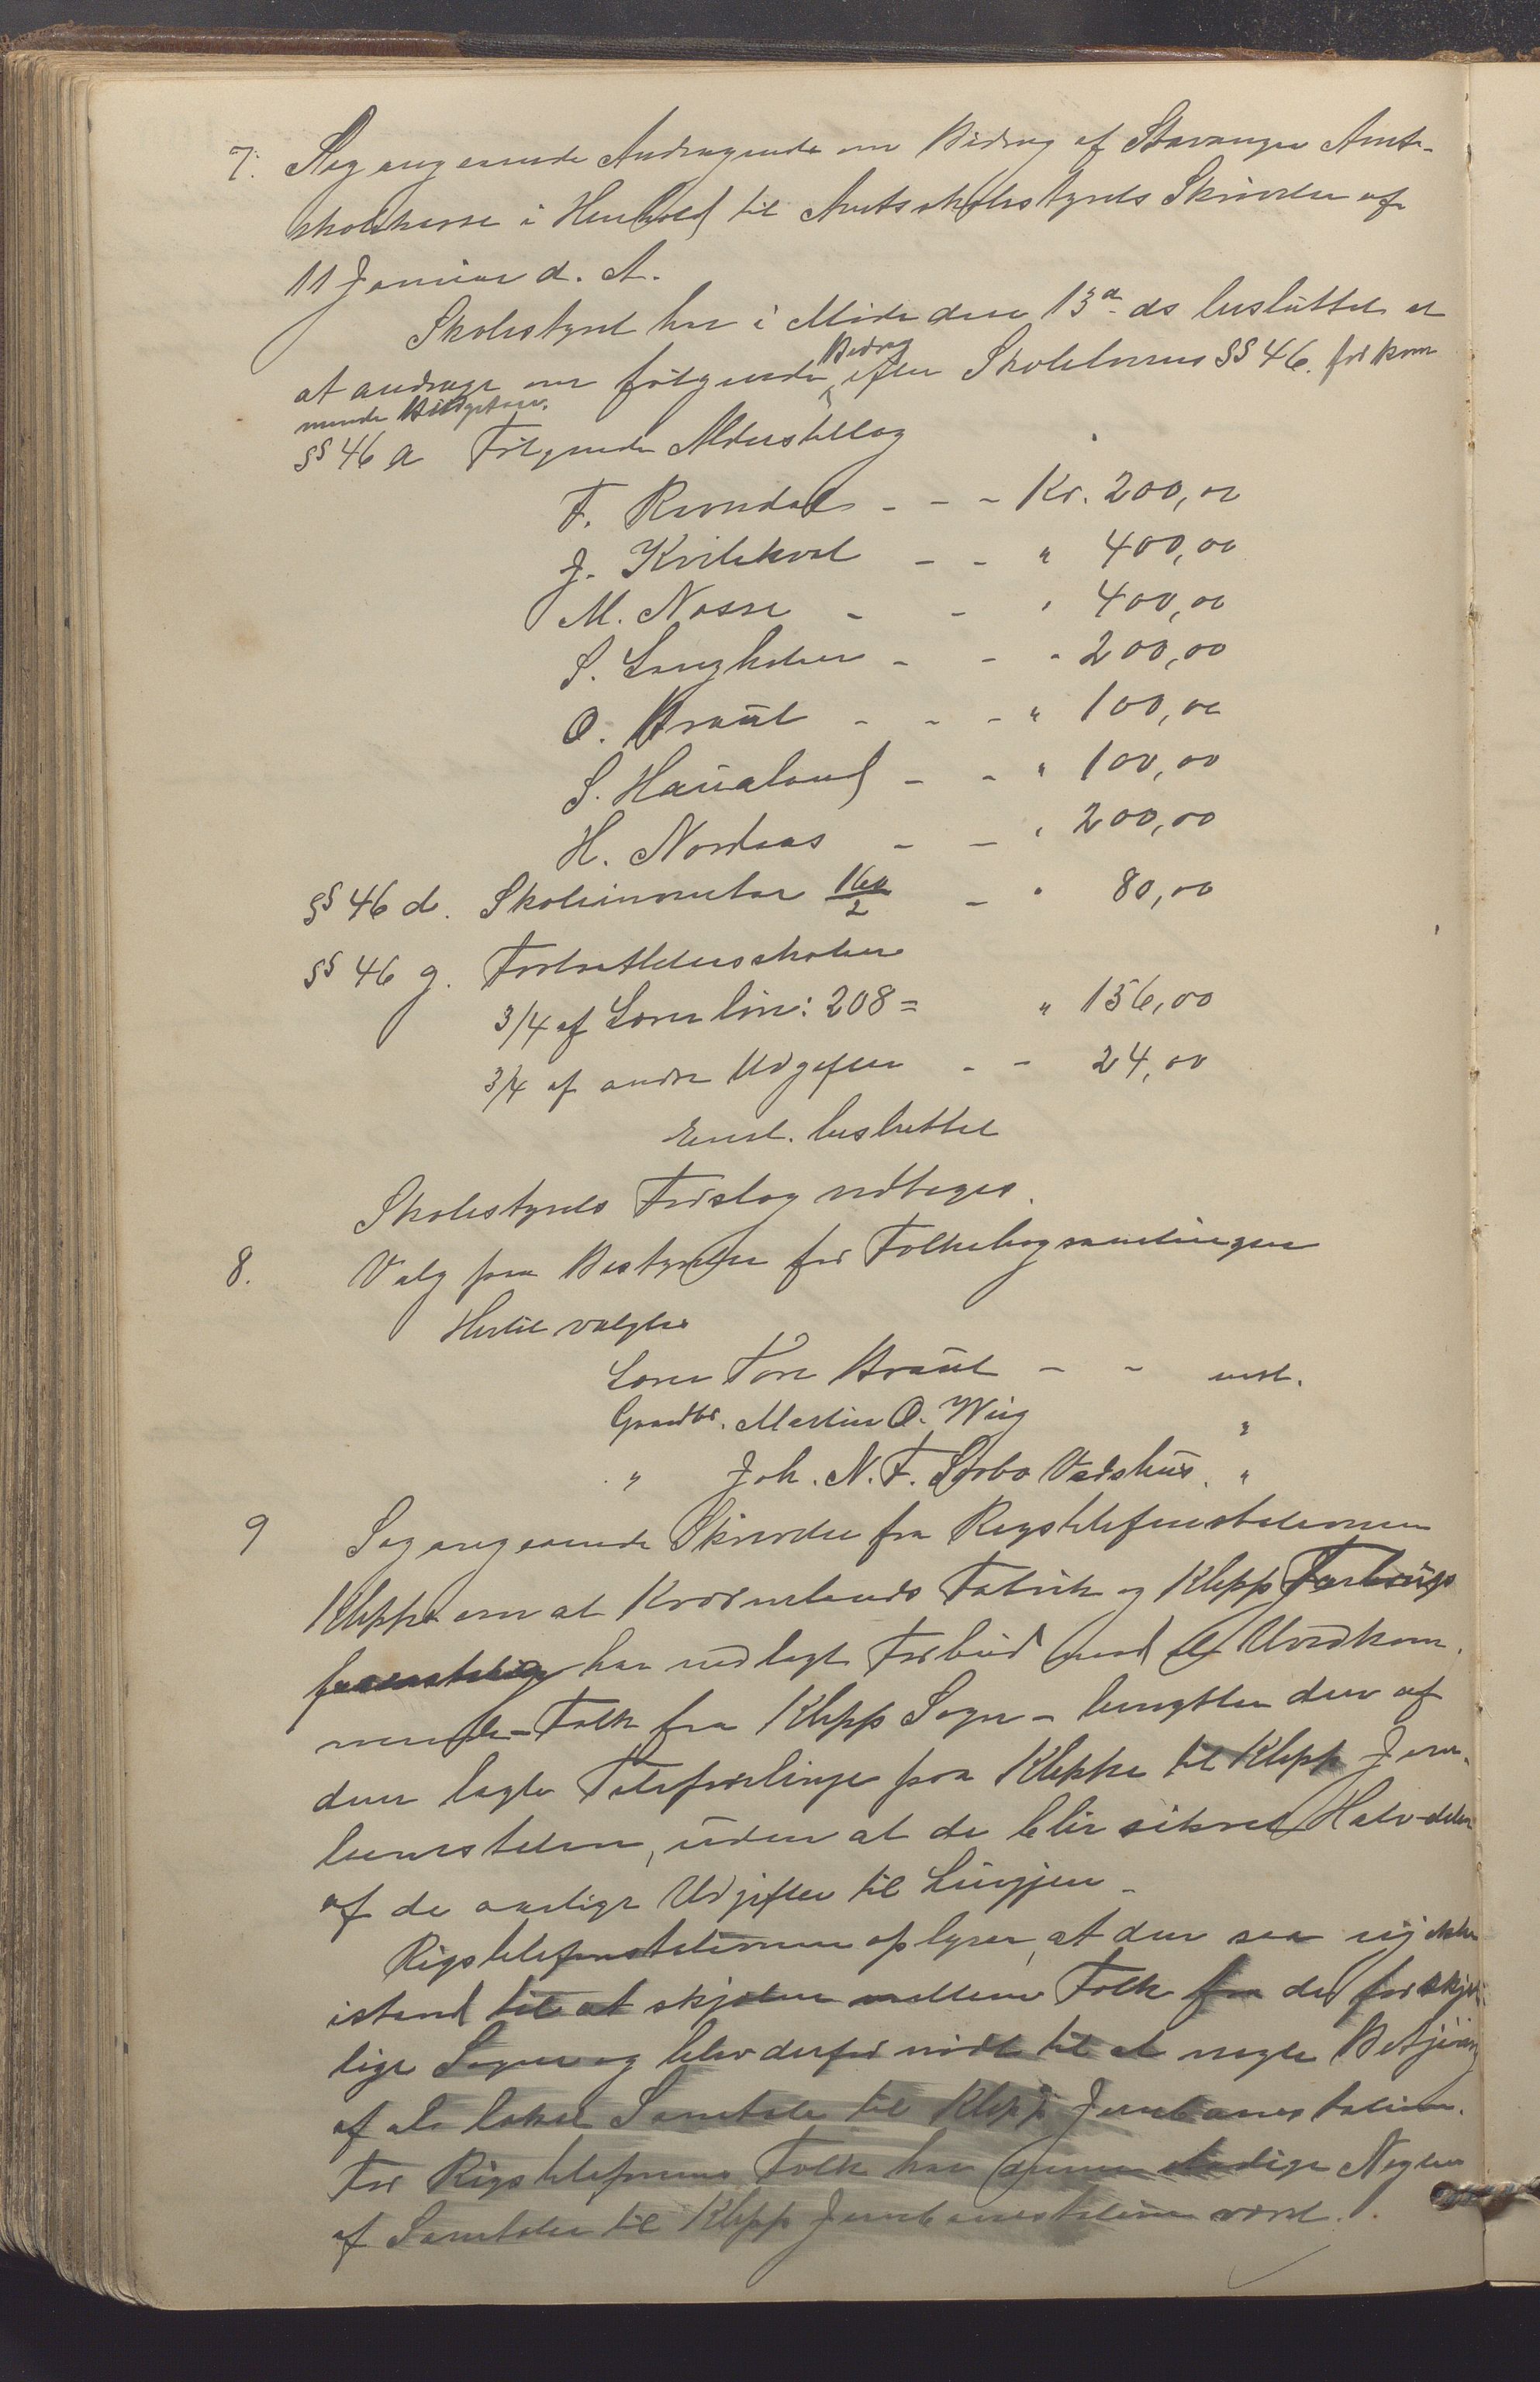 7. Sag angaaende Andragende om Bidrag af Stavanger Amts-
skolekasse i Henhold til Amtsskolestyrets Skrivelse af
11 Januar d. A.
Skolestyret har i Møde den 13de ds besluttet at
at andrage om følgende Bidrag efter Skolelovens §§ 46. for kom
mende Budgetaar.
§§ 46 a Følgende Alderstillæg
F. Revndal - - - Kr. 200,00
J. Kvilekval - - " 400,00
M. Nosse - - " 400,00
S. Langholen - - - 200,00
O. Braut - - - " 100,00
S. Haualand - - " 100,00
H. Nordaas - - " 200,00
§§ 46 d. Skoleinventar 160/2 - " 80,00
§§ 46 g. Fortsættelsesskolen
3/4 af Lærerløn: 208 = " 156,00
3/4 af andre Udgifter - - 24,00
Enst. besluttet
Skolestyrets Forslag vedtages.
8. Valg paa Bestyrelse for Folkebogsamlingen
Hertil valgtes
Lærer Tore Braut - - enst.
Gaardbr. Martin O. Wiig "
" Joh. N. F. Sørbø Vadshus. "
9 Sag angaaende Skrivelse fra Rigstelefonstationen
Kleppe om at Kværnelands Fabrik og Klepp
har nedlagt Forbud mod at Uvedkom
mende - Folk fra Klepp Sogn - benytter den af
dem lagte Telefonlinje fra Kleppe til Klepp Jern-
banestation, uden at de blir sikret Halvdelen
af de aarlige Udgifter til Linjen -
Rigstelefonstationen oplyser, at den saa sig ikke
istand til at skjelne mellem Folk fra de forskjel-
lige Sogne og blev derfor nødt til at nægte Betjening
af al lokal Samtale til Klepp Jernbanestation.
For Rigstelefonens Folk har denne stadige Nægten
af Samtaler til Klepp Jernbanestation været